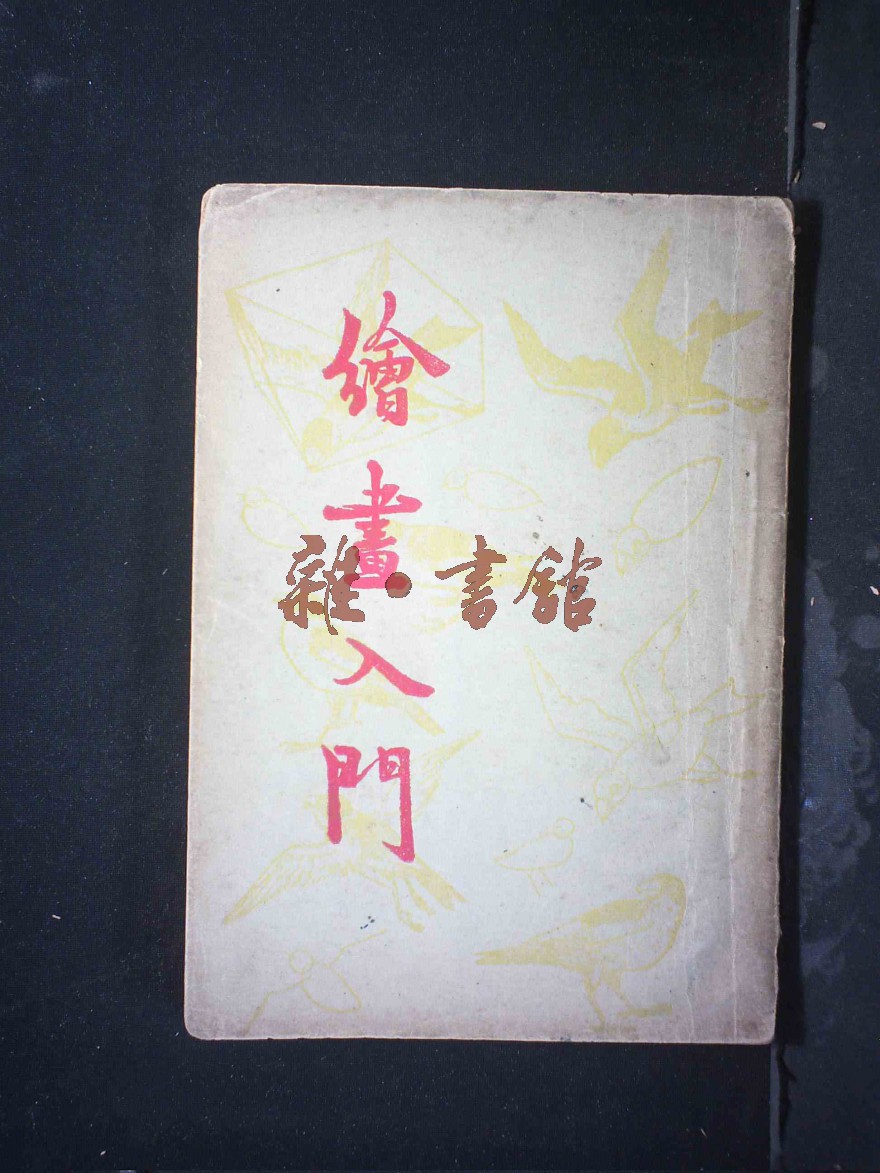 繪畫入門
雜·書館